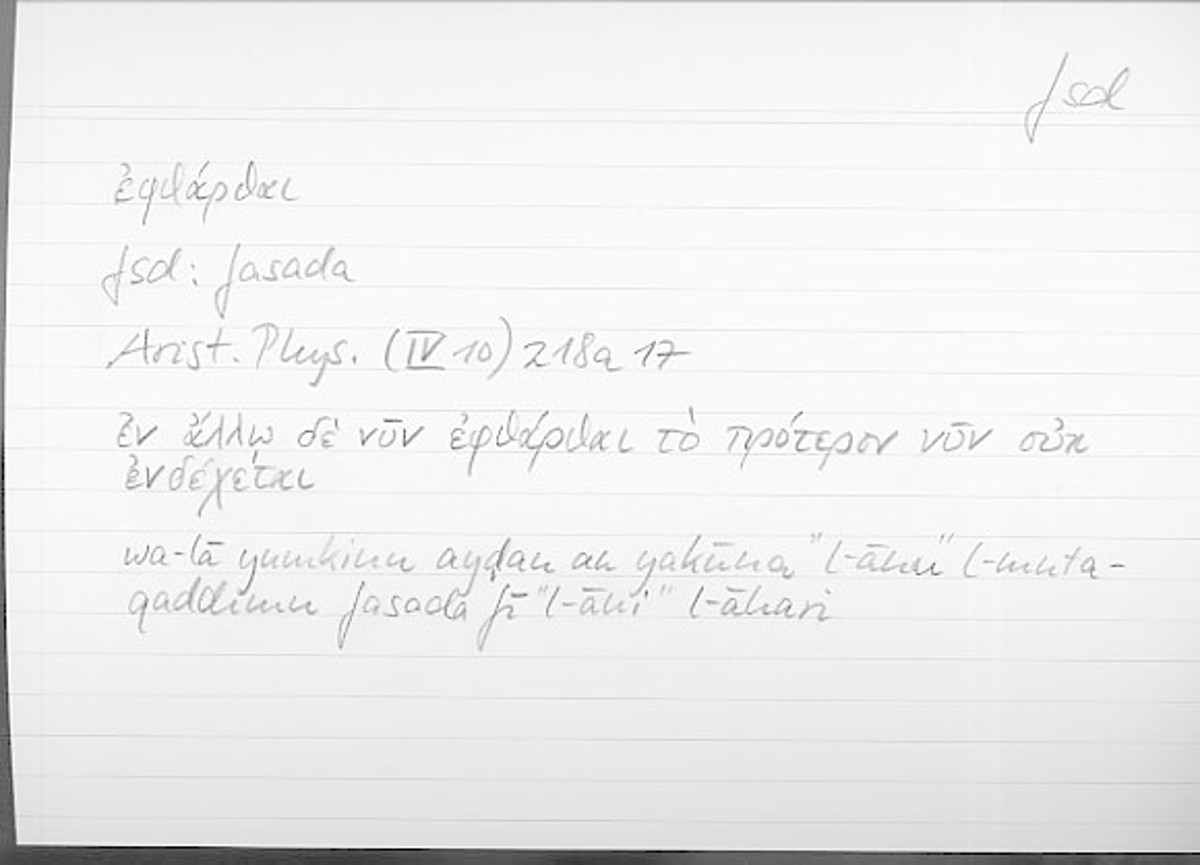 fsd
ἐφθάρθαι
fsd: fasada
Arist. Phys. (IV 10) 218a 17
ἐν ἄλλῳ δὲ νῦν ἐφθάρθαι τὸ πρότερον νῦν οὐκ
ἐνδέχεται
wa-lā yumkinu ayḍan an yakūna "l-ānu" l-muta-
qaddimu fasada fī "l-āni" l-āḫari